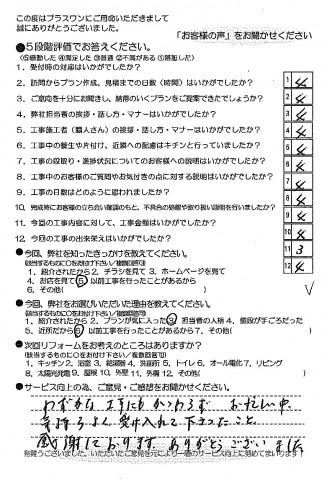 この度はプラスワンにご用命いただきまして
誠にありがとうございました。
「お客様の声」をお聞かせください
●5段階評価でお答えください。
(⑤感動した ④満足した ③普通 ②不満がある ①落胆した)
1. 受付時の対応はいかがでしたか?
2. 訪問からプラン作成、見積までの日数(時間)はいかがでしたか?
3. ご意向を十分にお聞きし、納得のいくプランをご提案できたでしょうか?
4. 弊社担当者の挨拶・話し方・マナーはいかがでしたか?
5. 工事施工者(職人さん)の挨拶・話し方・マナーはいかがでしたか?
6. 工事中の養生や片付け、近隣への配慮はキチンと行っていましたか?
7. 工事の段取り・進捗状況についてのお客様への説明はいかがでしたか?
8. 工事中のお客様のご質問やお気付きの点に対する説明はいかがでしたか?
9. 工事の日数はどのように思われましたか?
10. 完成時にお客様の立ち会い確認のもと、不具合の処理や取り扱い説明を行いましたか?
11. 今回の工事内容に対して、工事金額はいかがでしたか?
12. 今回の工事の出来栄えはいかがでしたか?
1 4
2 4
3 4
4 4
5 4
6 4
7 4
8 4
9 4
10 4
11 3
12 4
●今回、弊社を知ったきっかけを教えてください。
(該当するものに○をお付け下さい/複数回答可)
1. 紹介されたから 2. チラシを見て 3. ホームページを見て
4. お店を見て 5 以前工事を行ったことがあるから
6. その他( )
●今回、弊社をお選びいただいた理由を教えてください。
(該当するものに○をお付け下さい/複数回答可)
1. 紹介されたから 2. プランが気に入った 3 担当者の人柄 4. 値段が手ごろだった
5. 近所だから 6 以前工事を行ったことがあるから 7. その他( )
●次回リフォームをお考えのところはありますか?
(該当するものに○をお付け下さい/複数回答可)
1. キッチン 2. 浴室 3. 給湯器 4. 洗面所 5. トイレ 6. オール電化 7. リビング
8. 太陽光発電 9. 屋根 10. 外壁 11. 外構 12. その他( )
●サービス向上の為、ご意見・ご感想をお聞かせください。
わずかな工事にもかかわらず お忙しい中
気持ちよく受け入れて下さったこと、
感謝しております。ありがとうございました
有難うございました。いただいたご意見を元により一層のサービス向上に努めてまいります!